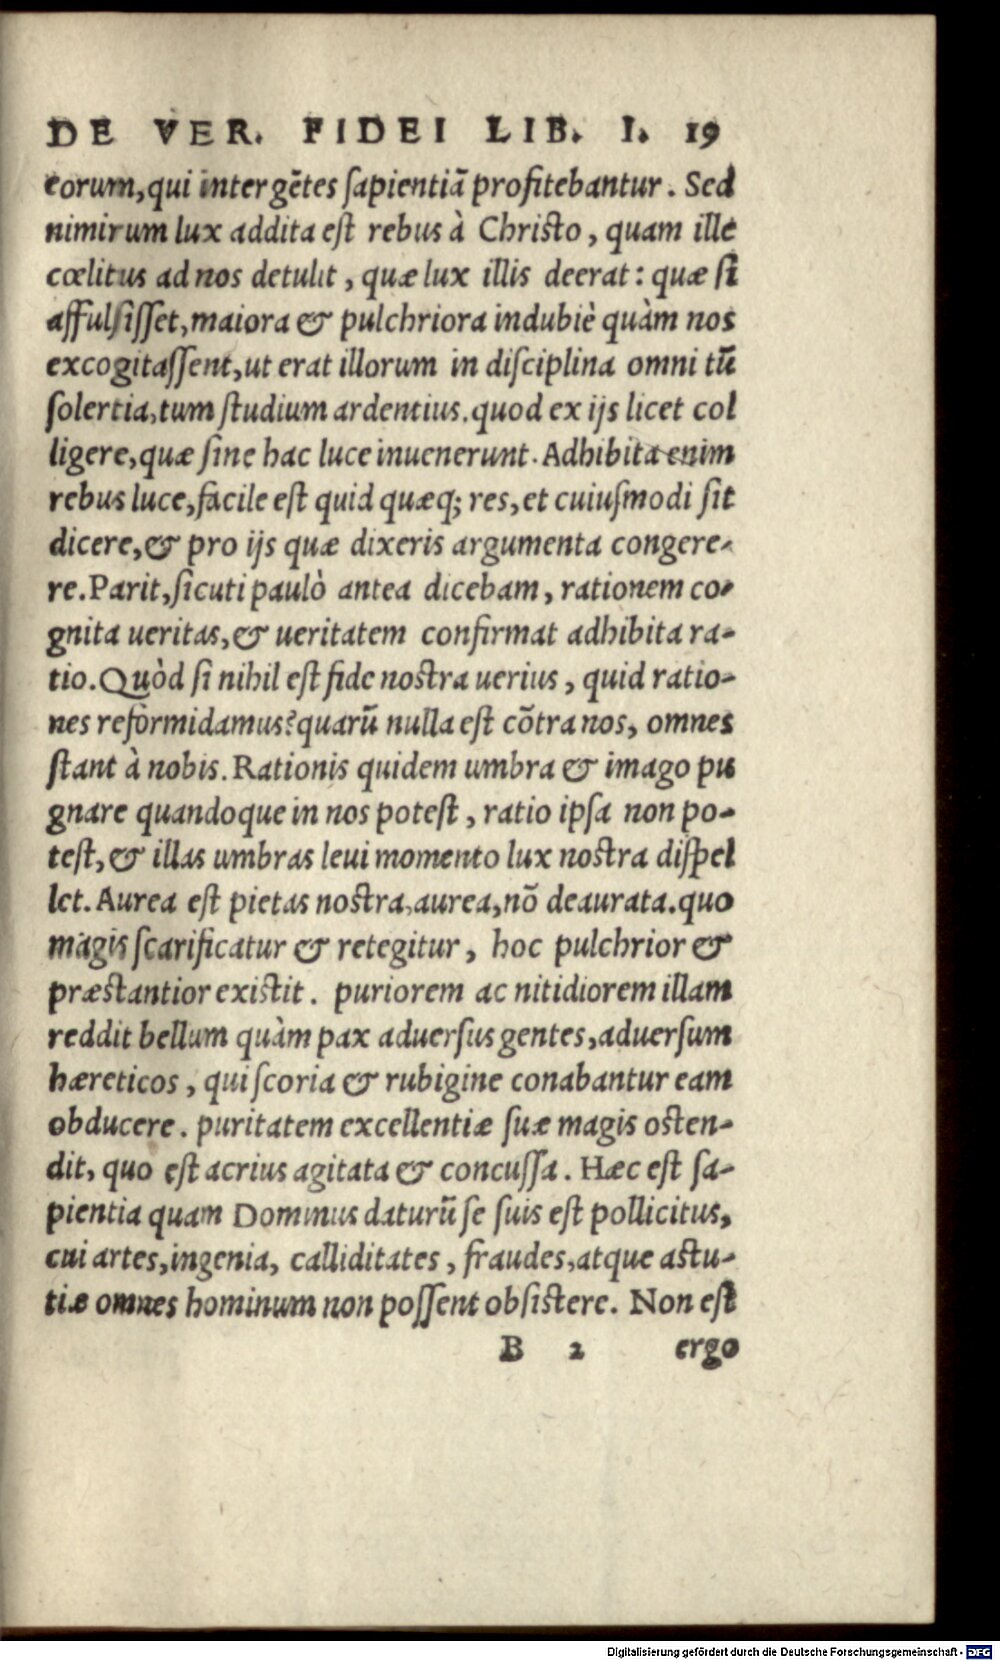 DE VER. FIDEI LIB. I. 19
eorum, qui inter gẽtes ſapientiã profitebantur. Sed
nimirum lux addita eſt rebus à Chriſto, quam ille
cœlitus ad nos detulit, quæ lux illis deerat: quæ ſi
affulſiſſet, maiora & pulchriora indubiè quàm nos
excogitaſſent, ut erat illorum in diſciplina omni tũ
ſolertia, tum ſtudium ardentius. quod ex ijs licet col
ligere, quæ ſine hac luce inuenerunt. Adhibita enim
rebus luce, facile eſt quid quæq; res, et cuiuſmodi ſit
dicere, & pro ijs quæ dixeris argumenta congere-
re. Parit, ſicuti paulò antea dicebam, rationem co-
gnita ueritas, & ueritatem confirmat adhibita ra-
tio. Quòd ſi nihil eſt fide noſtra uerius, quid ratio-
nes reformidamus? quarũ nulla eſt cõtra nos, omnes
ſtant à nobis. Rationis quidem umbra & imago pu
gnare quandoque in nos poteſt, ratio ipſa non po-
teſt, & illas umbras leui momento lux noſtra diſpel
let. Aurea eſt pietas noſtra, aurea, nõ deaurata. quo
magis ſcarificatur & retegitur, hoc pulchrior &
præſtantior exiſtit. puriorem ac nitidiorem illam
reddit bellum quàm pax aduerſus gentes, aduerſum
hæreticos, qui ſcoria & rubigine conabantur eam
obducere. puritatem excellentiæ ſuæ magis oſten-
dit, quo eſt acrius agitata & concuſſa. Hæc eſt ſa-
pientia quam Dominus daturũ ſe ſuis eſt pollicitus,
cui artes, ingenia, calliditates, fraudes, atque aſtu-
tiæ omnes hominum non poſſent obſiſtere. Non eſt
B 2 ergo
Digitalisierung gefördert durch die Deutsche Forschungsgemeinschaft - DFG